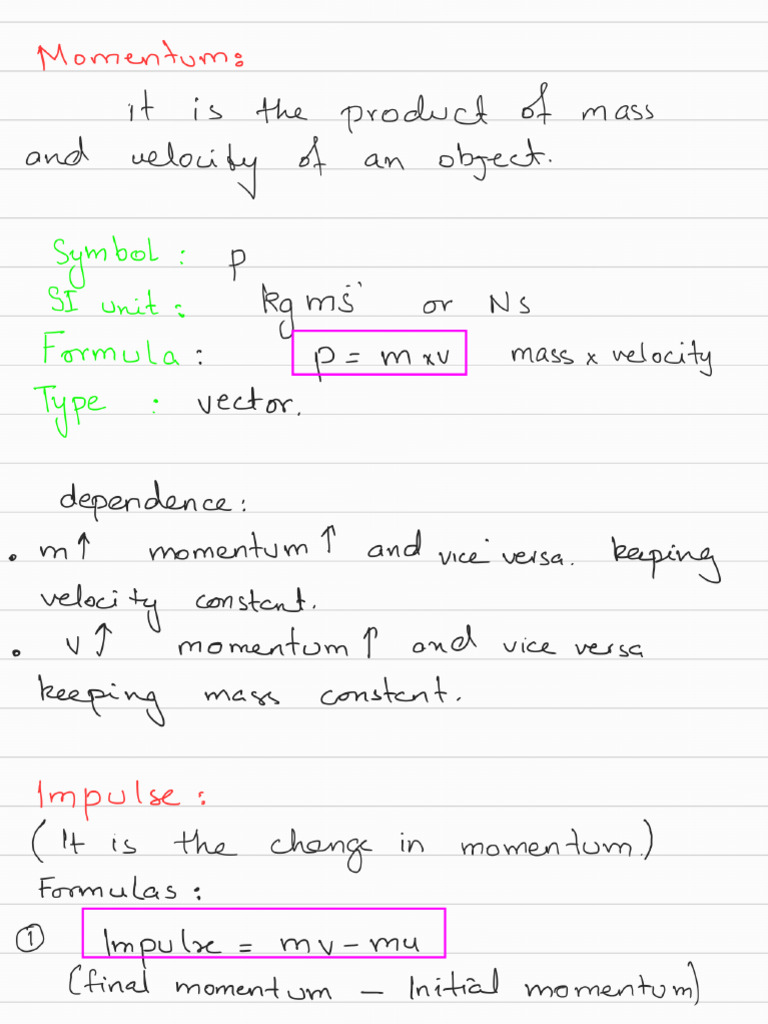 Momentum:
it is the product of mass
and velocity of an object.
Symbol : p
SI unit : kg ms⁻¹ or Ns
Formula : p = m×v mass × velocity
Type : vector.
dependence:
• m↑ momentum↑ and vice versa. keeping
velocity constant.
• v↑ momentum↑ and vice versa
keeping mass constant.
Impulse :
(It is the change in momentum.)
Formulas :
① Impulse = mv – mu
(final momentum – Initial momentum)